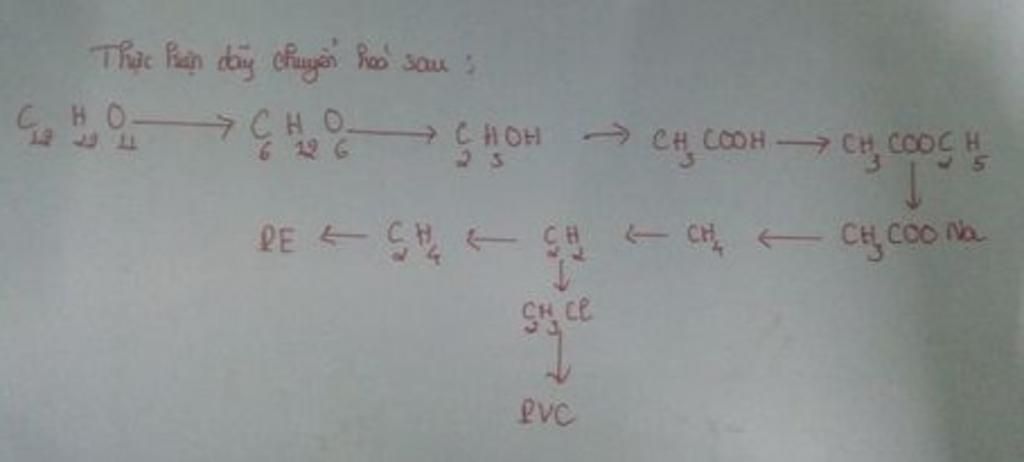 Thực hiện dãy chuyển hoá sau :
C12H22O11 → C6H12O6 → C2H5OH → CH3COOH → CH3COOC2H5
↓
PE ← C2H4 ← C2H2 ← CH4 ← CH3COONa
↓
C2H3Cl
↓
PVC